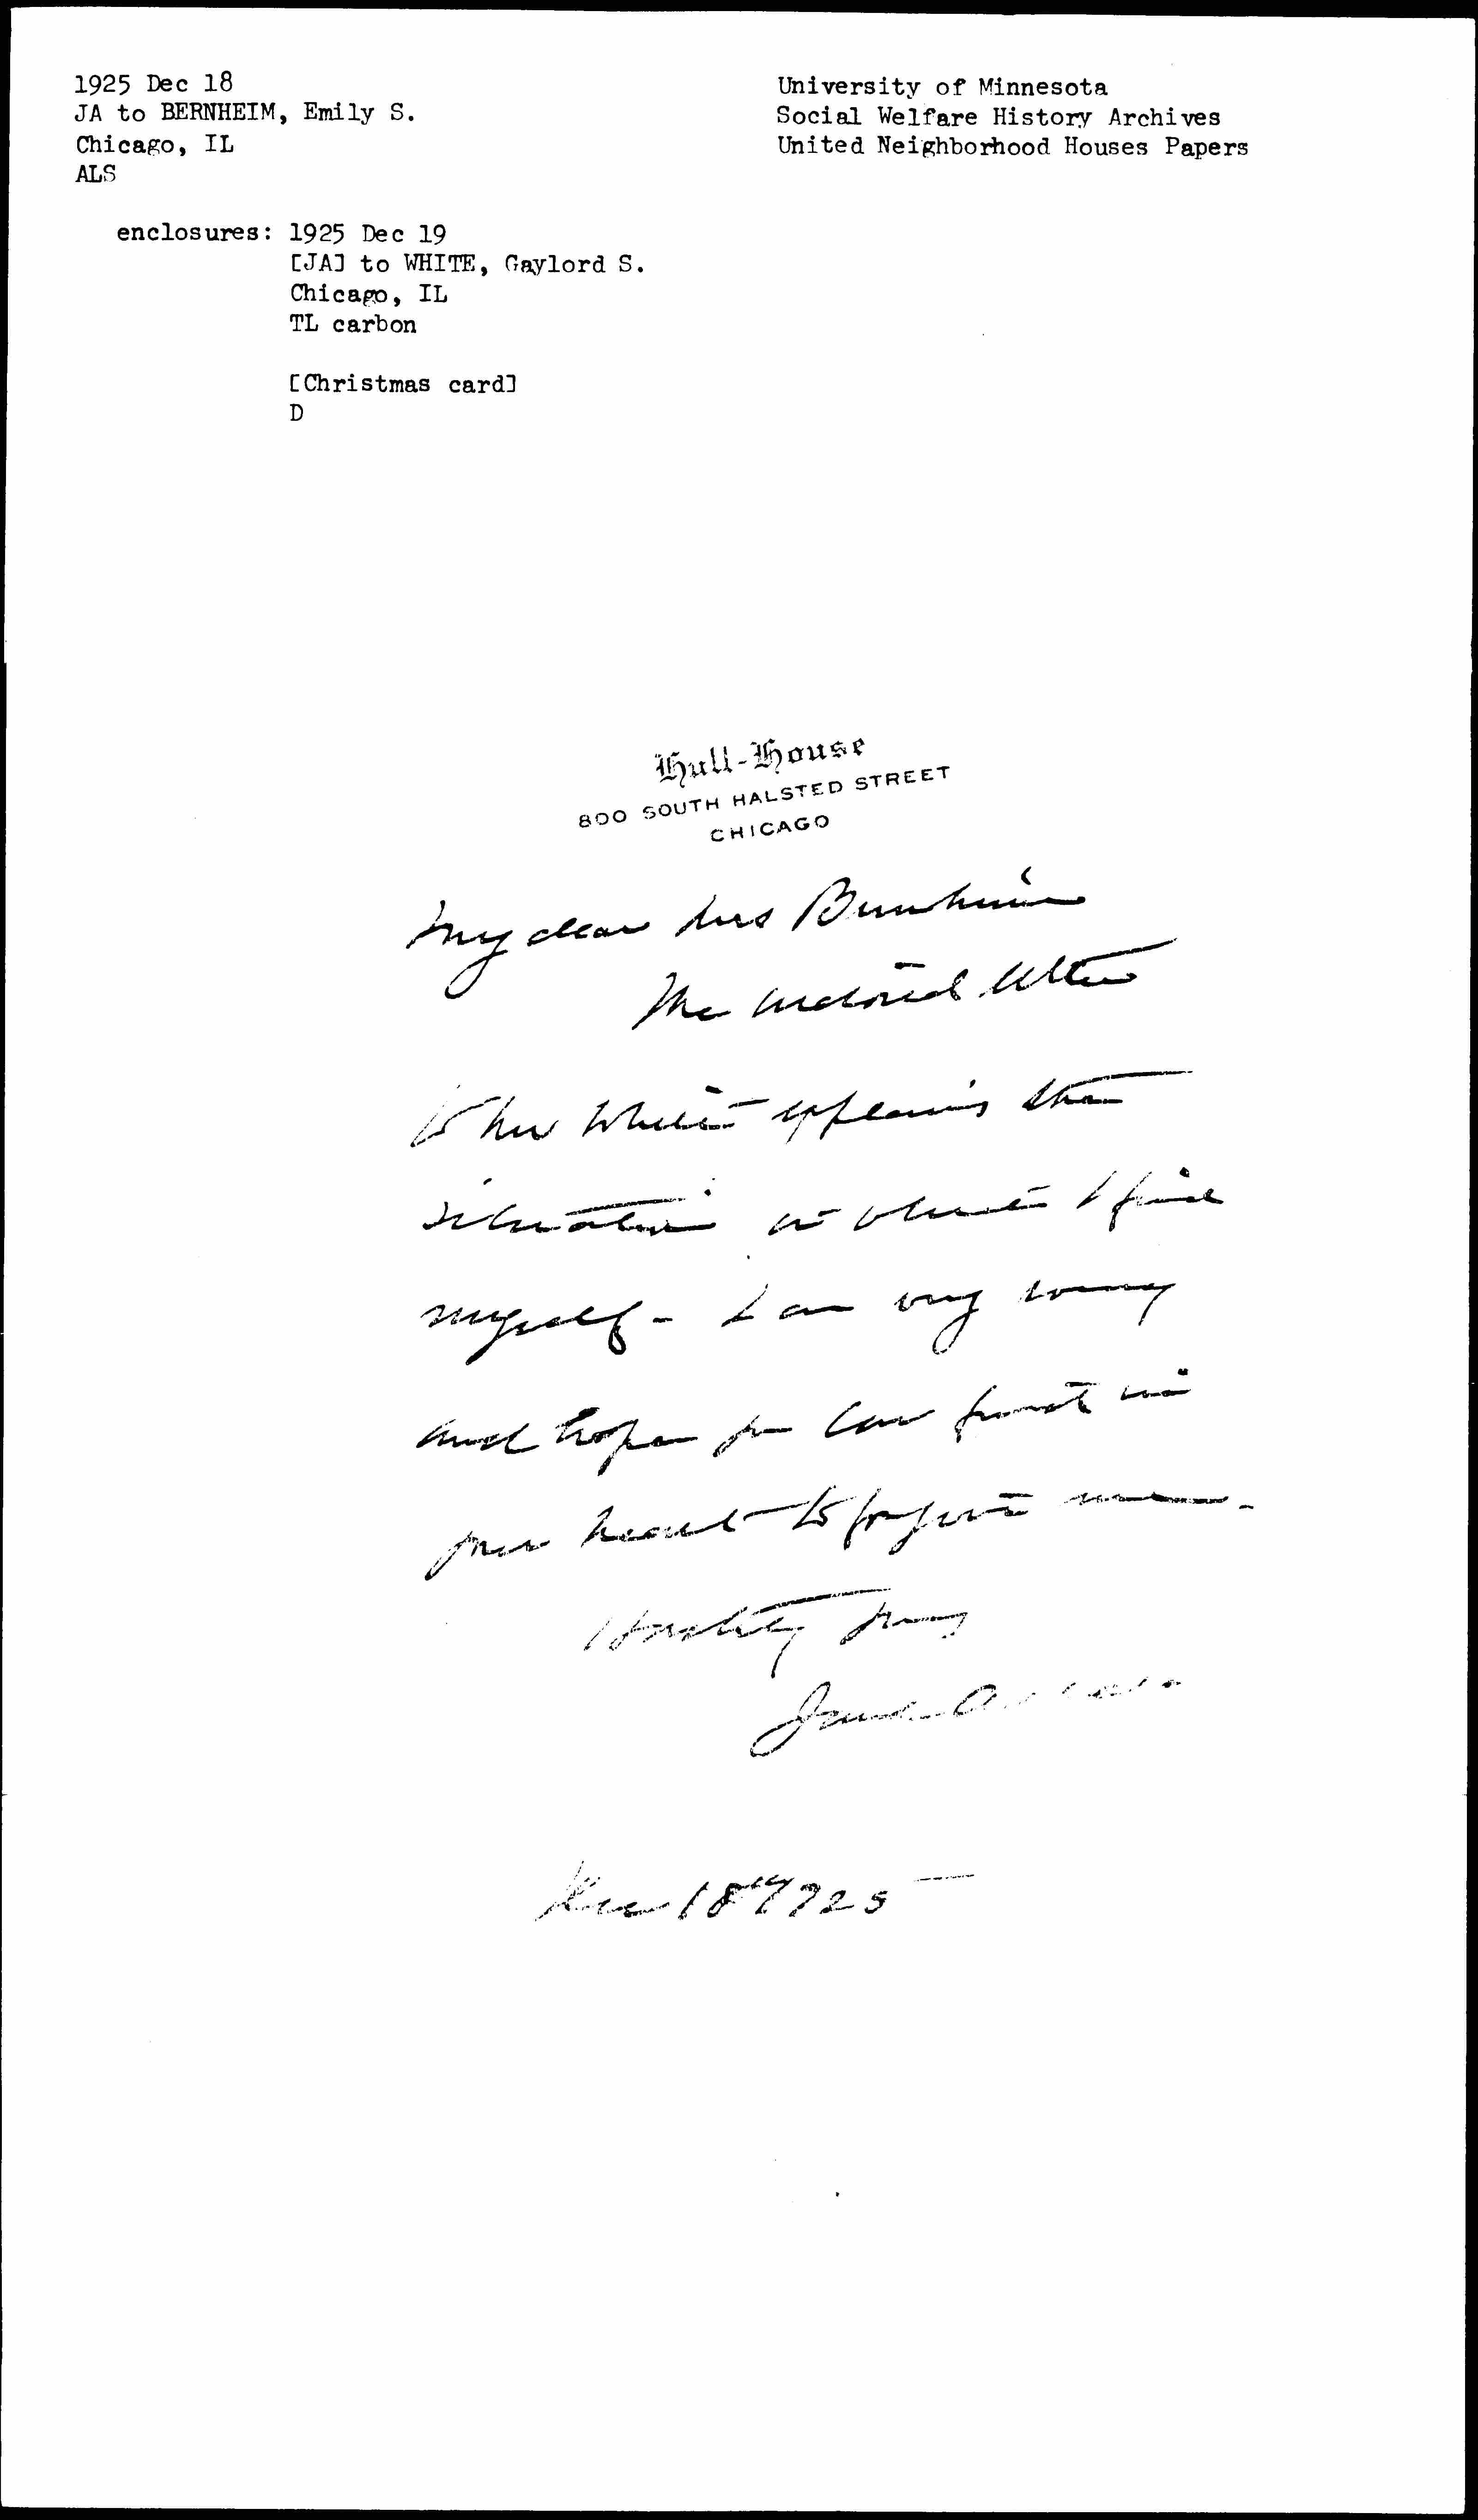 1925 Dec 18
JA to BERNHEIM, Emily S.
Chicago, IL
ALS
University of Minnesota
Social Welfare History Archives
United Neighborhood Houses Papers
enclosures: 1925 Dec 19
[JA] to WHITE, Gaylord S.
Chicago, IL
TL carbon
[Christmas card]
D
Hull-House
800 SOUTH HALSTED STREET
CHICAGO
My dear Mrs Bernheim
The enclosed letter
to Mr White explains the
situation in which I find
myself - I am very sorry
and hope you can find it in
your heart to forgive me -
Hastily yours
Jane Addams
Dec 18" 1925